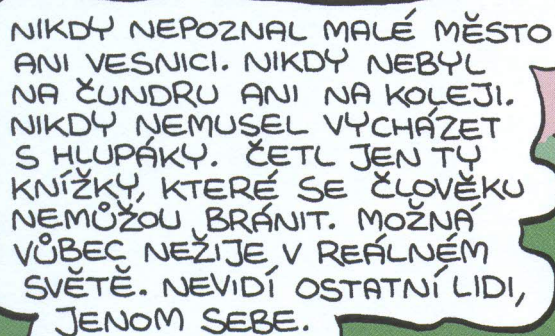 NIKDY NEPOZNAL MALÉ MĚSTO
ANI VESNICI. NIKDY NEBYL
NA ČUNDRU ANI NA KOLEJI.
NIKDY NEMUSEL VYCHÁZET
S HLUPÁKY. ČETL JEN TY
KNÍŽKY, KTERÉ SE ČLOVĚKU
NEMŮŽOU BRÁNIT. MOŽNÁ
VŮBEC NEŽIJE V REÁLNÉM
SVĚTĚ. NEVIDÍ OSTATNÍ LIDI,
JENOM SEBE.